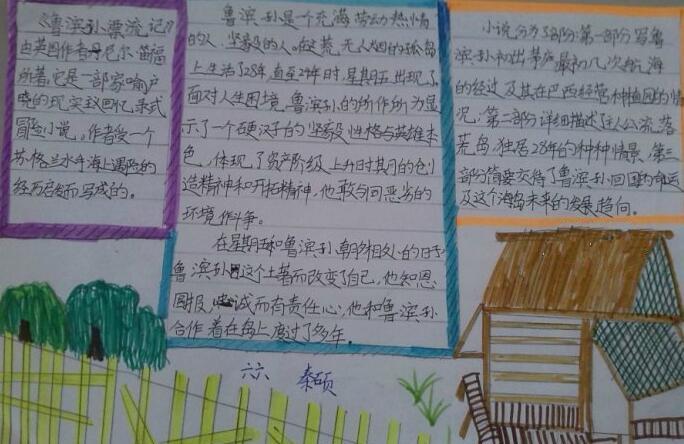 《鲁滨孙漂流记》
由英国作者丹尼尔·笛福
所著。它是一部家喻户
晓的现实主义回忆录式
冒险小说。作者受一个
苏格兰水手海上遇险的
经历启发而写成的。
鲁滨孙是个充满劳动热情
的人，坚毅的人。在这荒无人烟的孤岛
上生活了28年，直至24年时，星期五出现了
面对人生困境，鲁滨孙的所作所为显
示了一个硬汉子的坚毅性格与英雄本
色，体现了资产阶级上升时期的创
造精神和开拓精神，他敢与同恶劣的
环境作斗争。
在星期五和鲁滨孙朝夕相处的日子
鲁滨孙因这个土著而改变了自己，他知恩
图报，忠诚而有责任心，他和鲁滨孙
合作着在岛上度过了多年。
小说分为3部分：第一部分写鲁
滨孙初出茅庐，最初几次航海
的经过及其在巴西经营种植园的情
况；第二部分详细描述了主人公流落
荒岛，独居28年的种种情景，第三
部分简要交待了鲁滨孙回国的命运
及这个海岛未来的发展趋向。
六六 秦硕